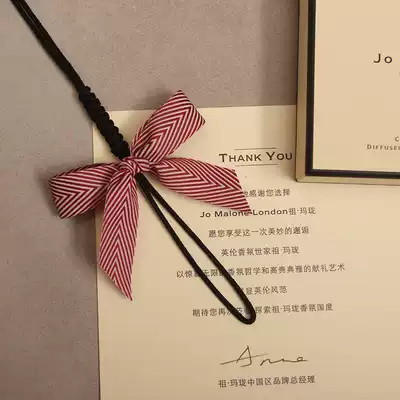 Jo
C
DIFFUSE
THANK YOU
感谢您选择
Jo Malone London祖·玛珑
愿您享受这一次美妙的邂逅
英伦香氛世家祖·玛珑
以惊
香氛哲学和高贵典雅的献礼艺术
英伦风范
期待您再次
探索祖·玛珑香氛国度
Anne
祖·玛珑中国区品牌总经理